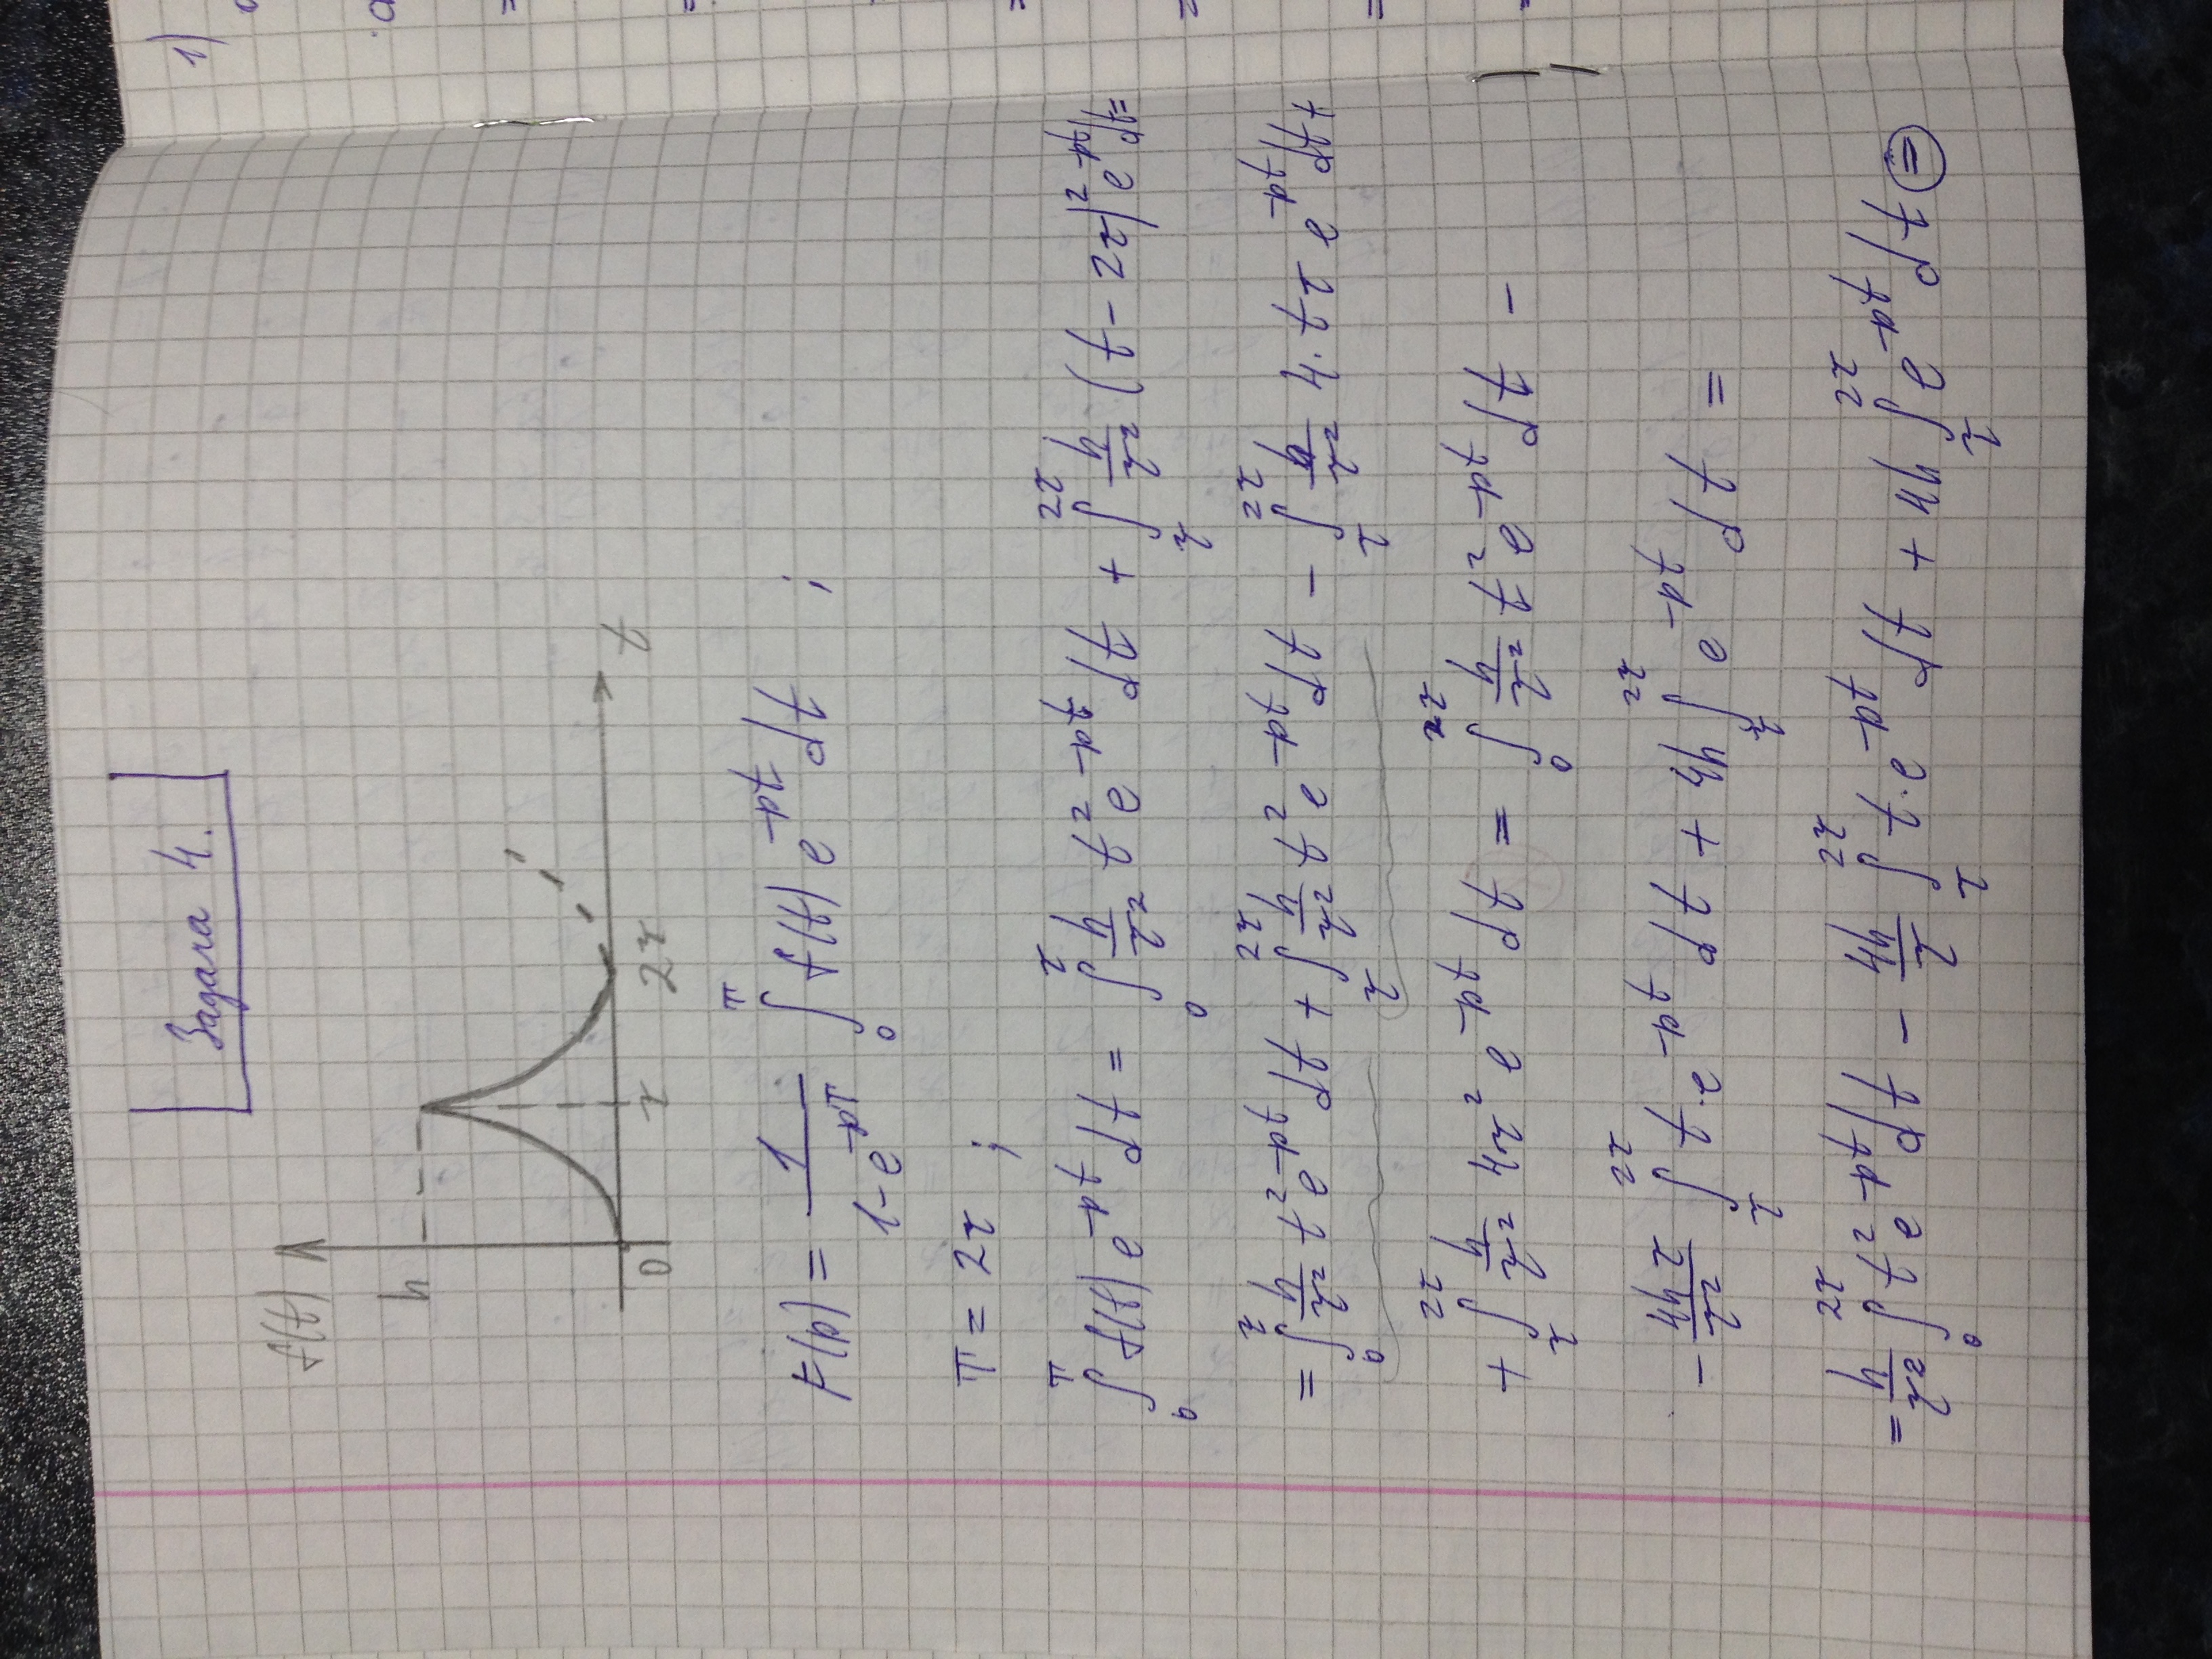 Задача 4.
f(t)
h
0 τ 2τ t
F(p) = 1/(1-e^{-pT}) ∫_0^T f(t) e^{-pt} dt ;
T = 2τ ;
∫_0^T f(t) e^{-pt} dt = ∫_0^τ h/τ² t² e^{-pt} dt + ∫_τ^{2τ} h/τ² (t - 2τ)² e^{-pt} dt =
= ∫_0^τ h/τ² t² e^{-pt} dt + ∫_τ^{2τ} h/τ² t² e^{-pt} dt - ∫_τ^{2τ} h/τ² 4·t τ e^{-pt} dt +
+ ∫_τ^{2τ} h/τ² 4τ² e^{-pt} dt = ∫_0^{2τ} h/τ² t² e^{-pt} dt -
- 4hτ/τ² ∫_τ^{2τ} t·e^{-pt} dt + 4h ∫_τ^{2τ} e^{-pt} dt =
= h/τ² ∫_0^{2τ} t² e^{-pt} dt - 4h/τ ∫_τ^{2τ} t·e^{-pt} dt + 4h ∫_τ^{2τ} e^{-pt} dt =
1)